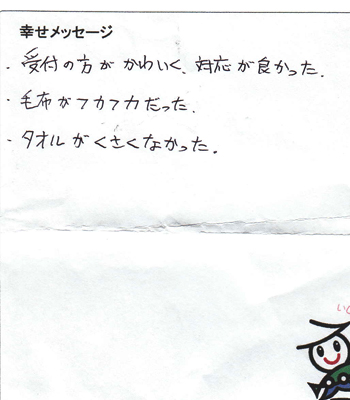 幸せメッセージ
・受付の方が かわいく、対応が良かった.
・毛布がフカフカだった.
・タオルがくさくなかった.